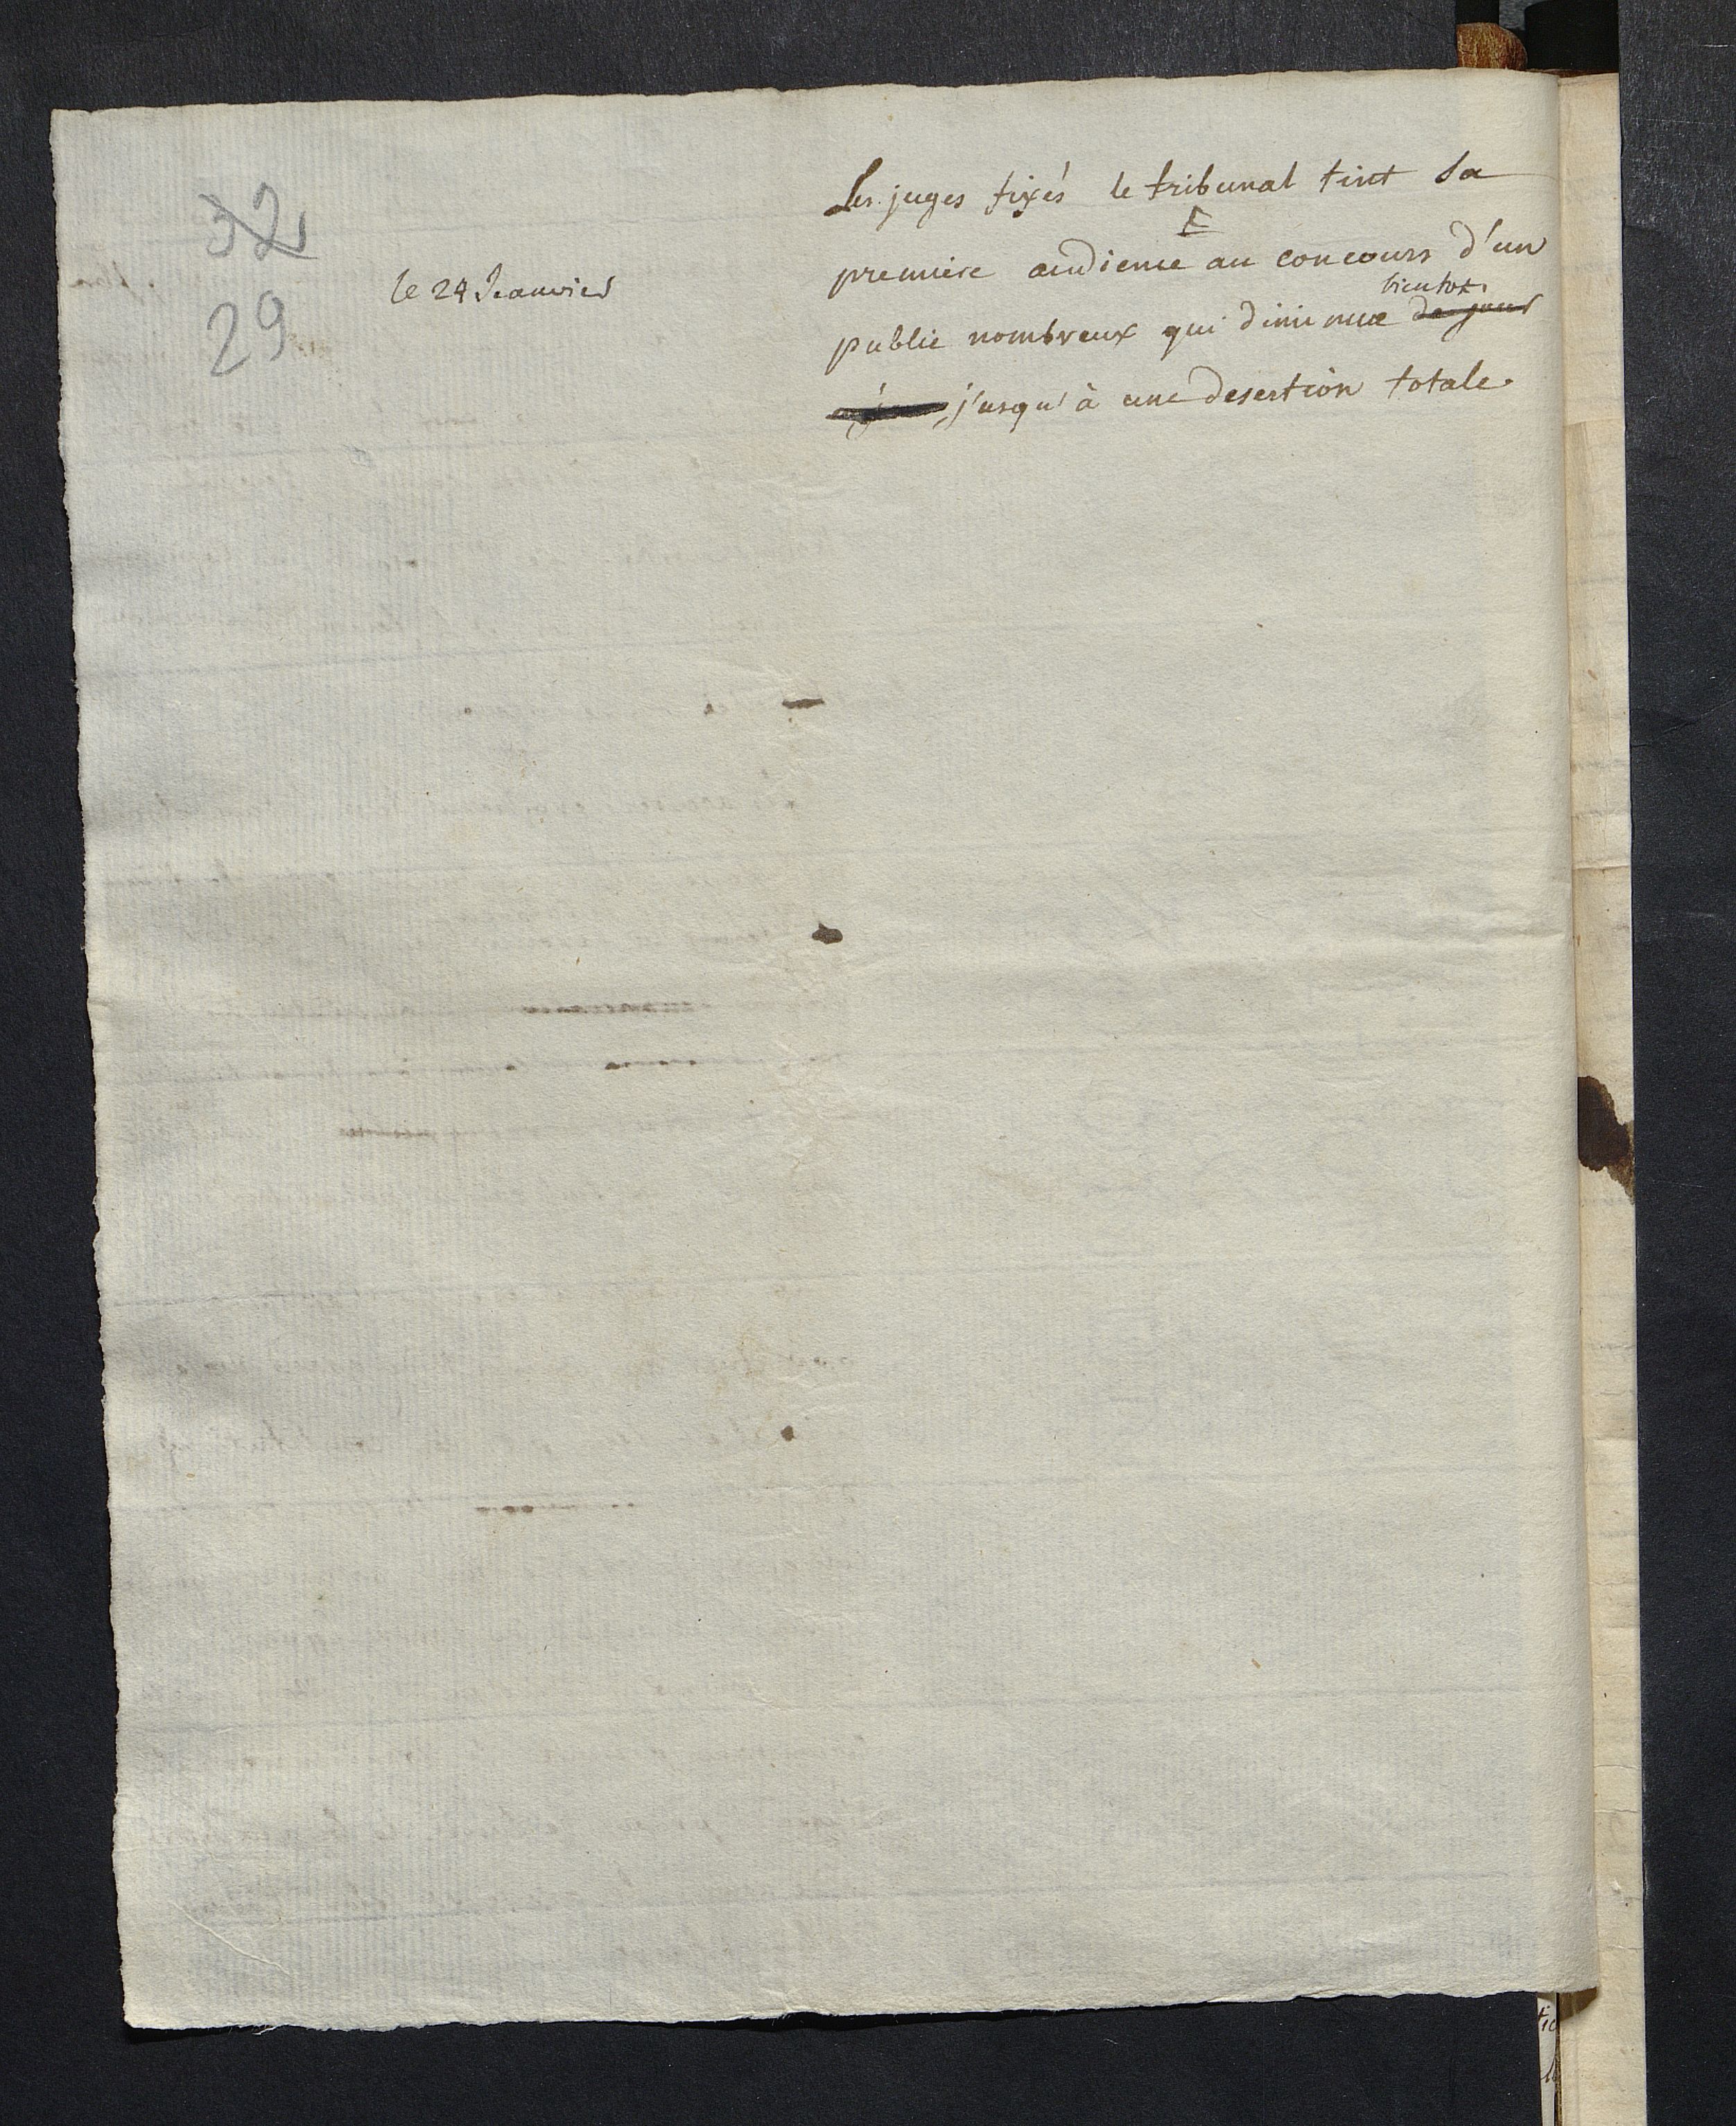 32
29
le 24 Jeanvier
Les juges fixés le tribunal tint sa
E
premiere audience au concours d'un
bientot
public nombreux qui diminue de jour
a jour jusqu'à une desertion totale.